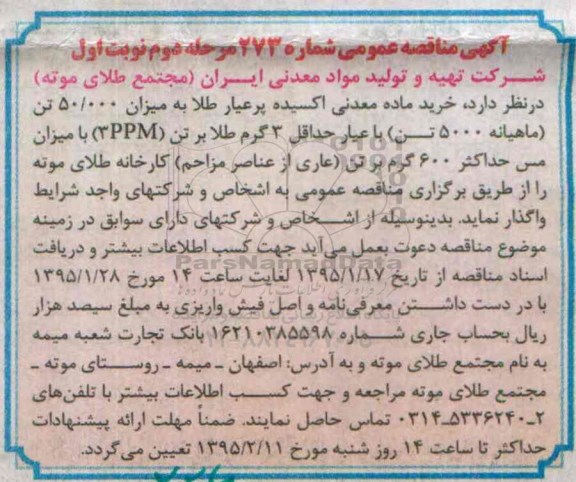 آگهی مناقصه عمومی شماره ۲۷۳ مرحله دوم نوبت اول
شرکت تهیه و تولید مواد معدنی ایران (مجتمع طلای موته)
درنظر دارد، خرید ماده معدنی اکسیده پرعیار طلا به میزان ۵۰/۰۰۰ تن
(ماهیانه ۵۰۰۰ تن) با عیار حداقل ۳ گرم طلا بر تن (۳PPM) با میزان
مس حداکثر ۶۰۰ گرم بر تن (عاری از عناصر مزاحم) کارخانه طلای موته
را از طریق برگزاری مناقصه عمومی به اشخاص و شرکتهای واجد شرایط
واگذار نماید. بدینوسیله از اشخاص و شرکتهای دارای سوابق در زمینه
موضوع مناقصه دعوت بعمل می‌آید جهت کسب اطلاعات بیشتر و دریافت
اسناد مناقصه از تاریخ ۱۳۹۵/۱/۱۷ لغایت ساعت ۱۴ مورخ ۱۳۹۵/۱/۲۸
با در دست داشتن معرفی‌نامه و اصل فیش واریزی به مبلغ سیصد هزار
ریال بحساب جاری شماره ۱۶۲۱۰۳۸۵۵۹۸ بانک تجارت شعبه میمه
به نام مجتمع طلای موته و به آدرس: اصفهان ـ میمه ـ روستای موته ـ
مجتمع طلای موته مراجعه و جهت کسب اطلاعات بیشتر با تلفن‌های
۲ـ۰۳۱۴ـ۵۳۳۶۲۴۰ تماس حاصل نمایند. ضمناً مهلت ارائه پیشنهادات
حداکثر تا ساعت ۱۴ روز شنبه مورخ ۱۳۹۵/۲/۱۱ تعیین می‌گردد.
ParsNamadData